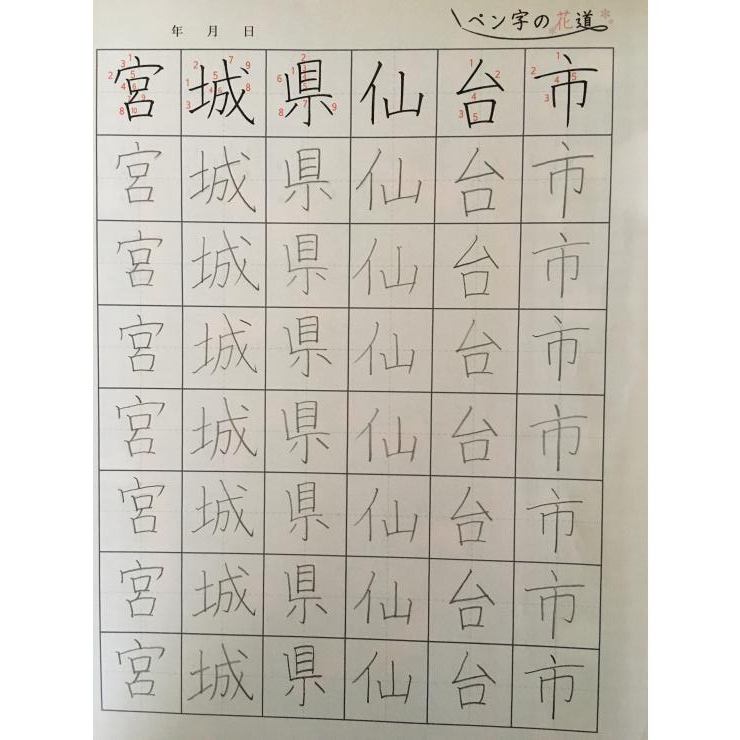 ペン字の花道
年 月 日
宮城県仙台市
宮城県仙台市
宮城県仙台市
宮城県仙台市
宮城県仙台市
宮城県仙台市
宮城県仙台市
宮城県仙台市